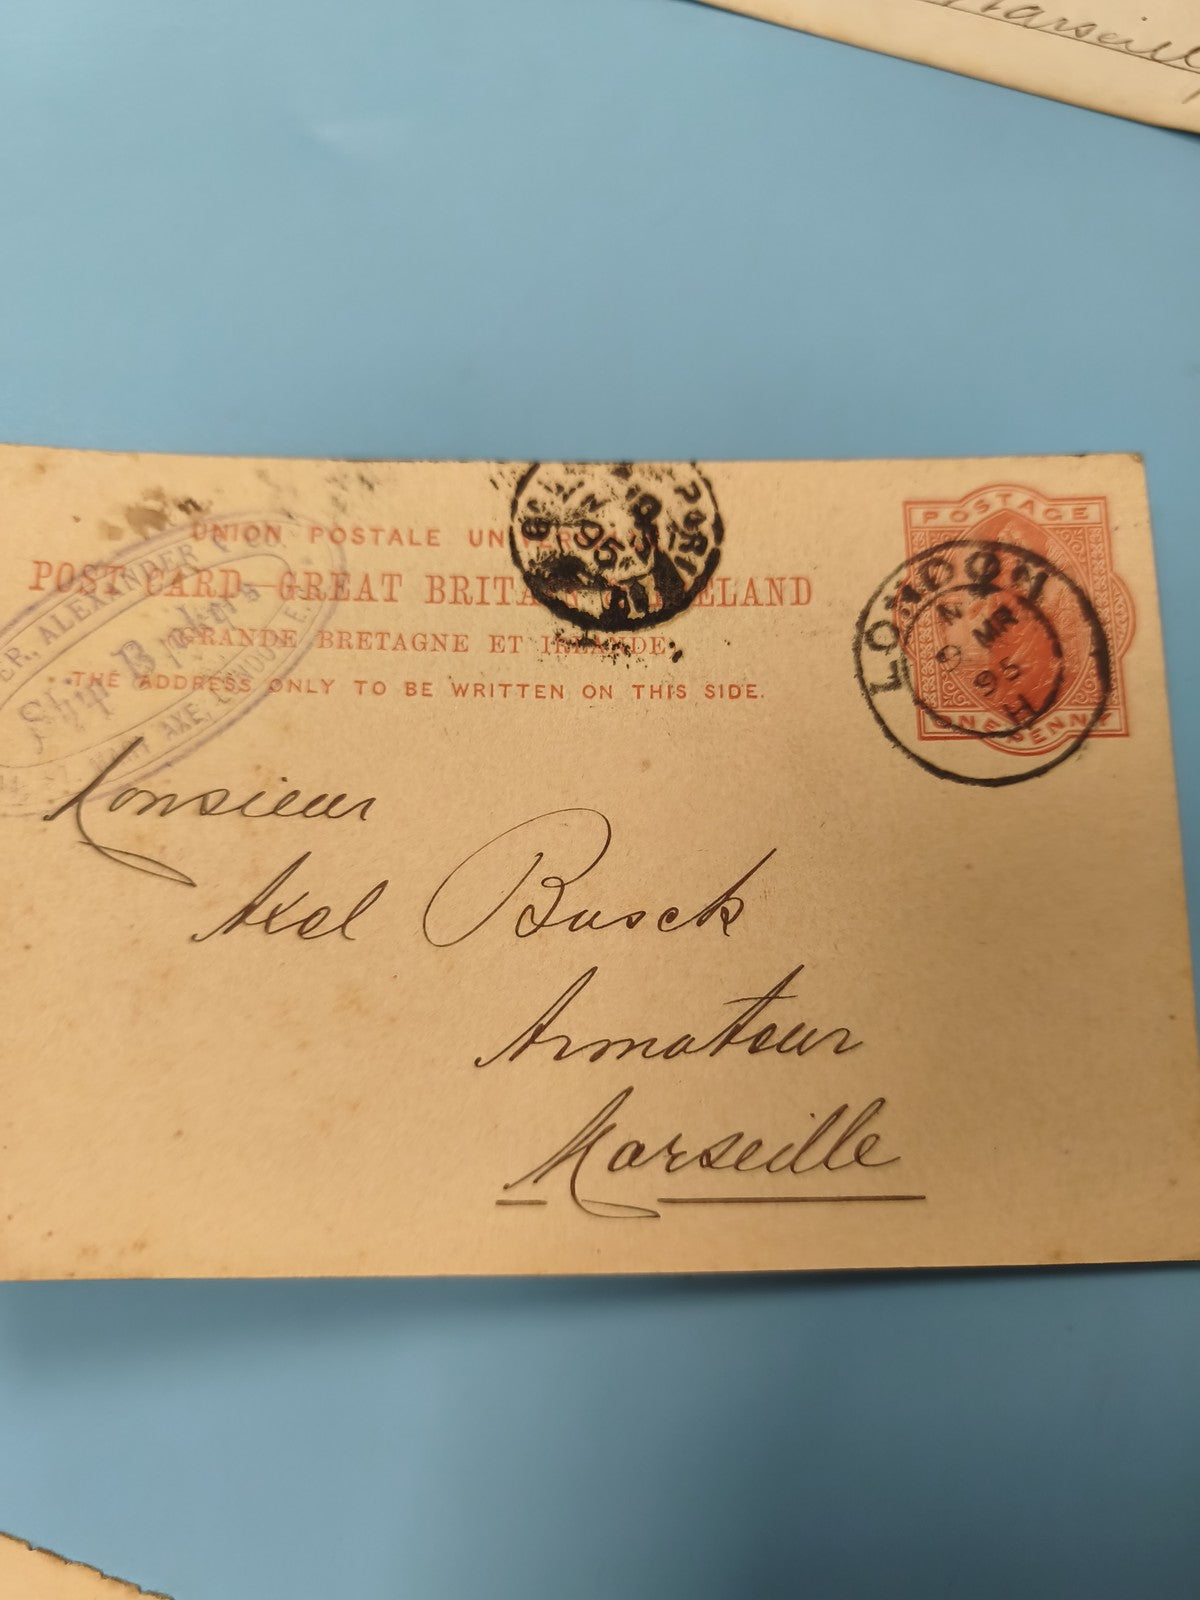 Marseille
UNION POSTALE
POST CARD—GREAT BRITAIN & IRELAND
GRANDE BRETAGNE ET IRLANDE
THE ADDRESS ONLY TO BE WRITTEN ON THIS SIDE.
ALEXANDER
Ship Brokers
AXE, LONDON E.
95
POSTAGE
ONE PENNY
LONDON
MR
95
H
Monsieur
Axel Busck
Armateur
Marseille